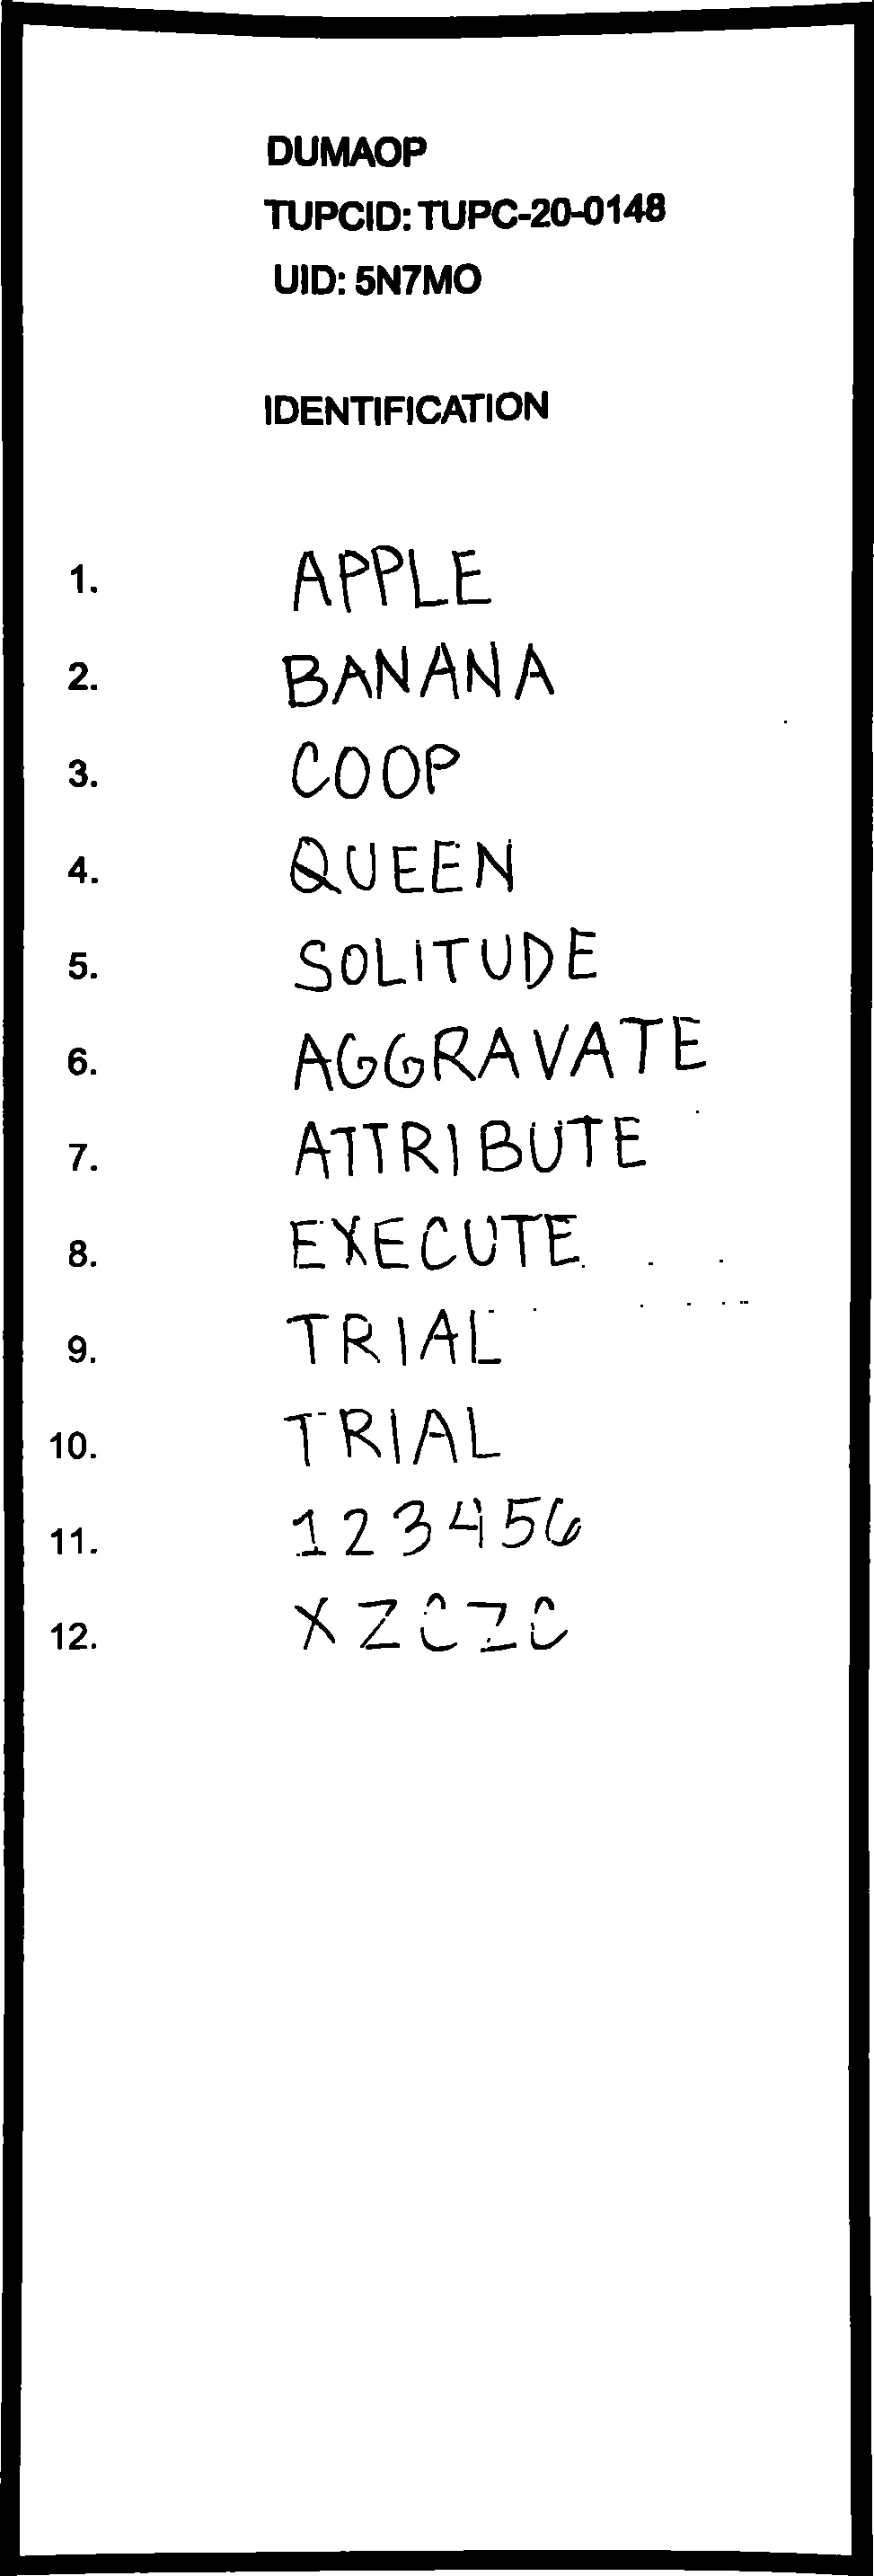 DUMAOP
TUPCID: TUPC-20-0148
UID: 5N7MO
IDENTIFICATION
1. APPLE
2. BANANA
3. COOP
4. QUEEN
5. SOLITUDE
6. AGGRAVATE
7. ATTRIBUTE
8. EXECUTE
9. TRIAL
10. TRIAL
11. 123456
12. XZCZC